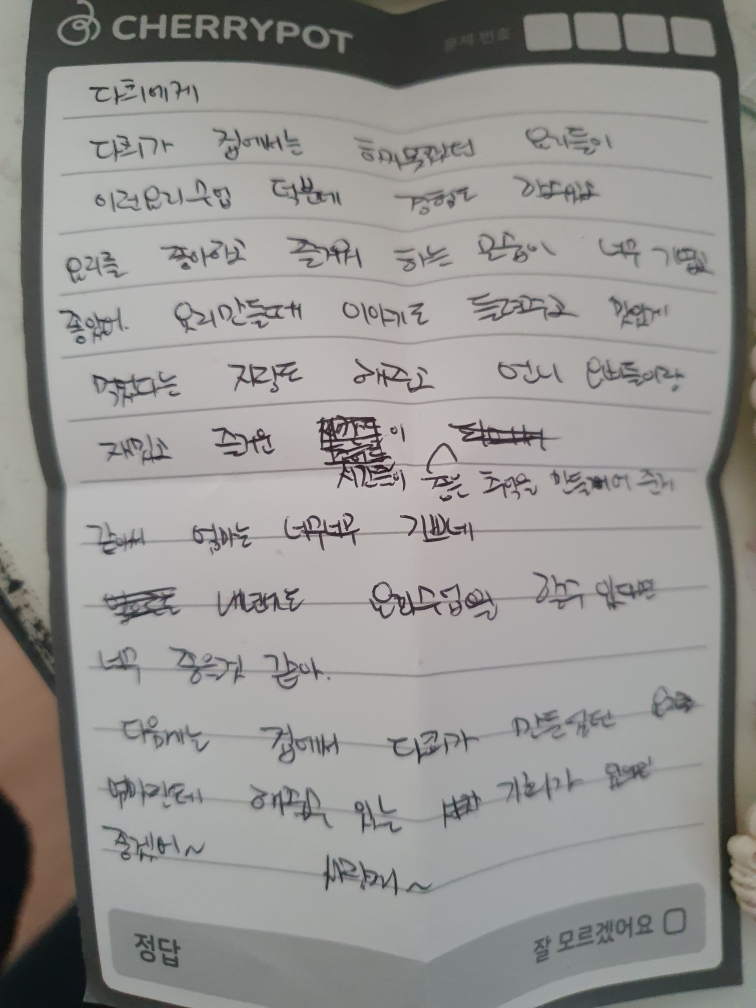 CHERRYPOT 문제 번호
다희에게
다희가 집에서는 하지못했던 요리들이
이런요리수업 덕분에 경험도 하고
요리를 좋아하고 즐거워 하는 모습이 너무 기쁘고
좋았어. 요리만들때 이야기도 들려주고 맛있게
먹었다는 자랑도 해주고 언니 오빠들이랑
재밌고 즐거운 이
시간들이 좋은 추억을 만들어 준거
같아서 엄마는 너무너무 기쁘네
내년에도 요리수업을 할수 있다면
너무 좋을것 같아.
다음에는 집에서 다희가 만든
엄마한테 해줄수 있는 기회가
좋겠어~ 사랑해~
정답 잘 모르겠어요